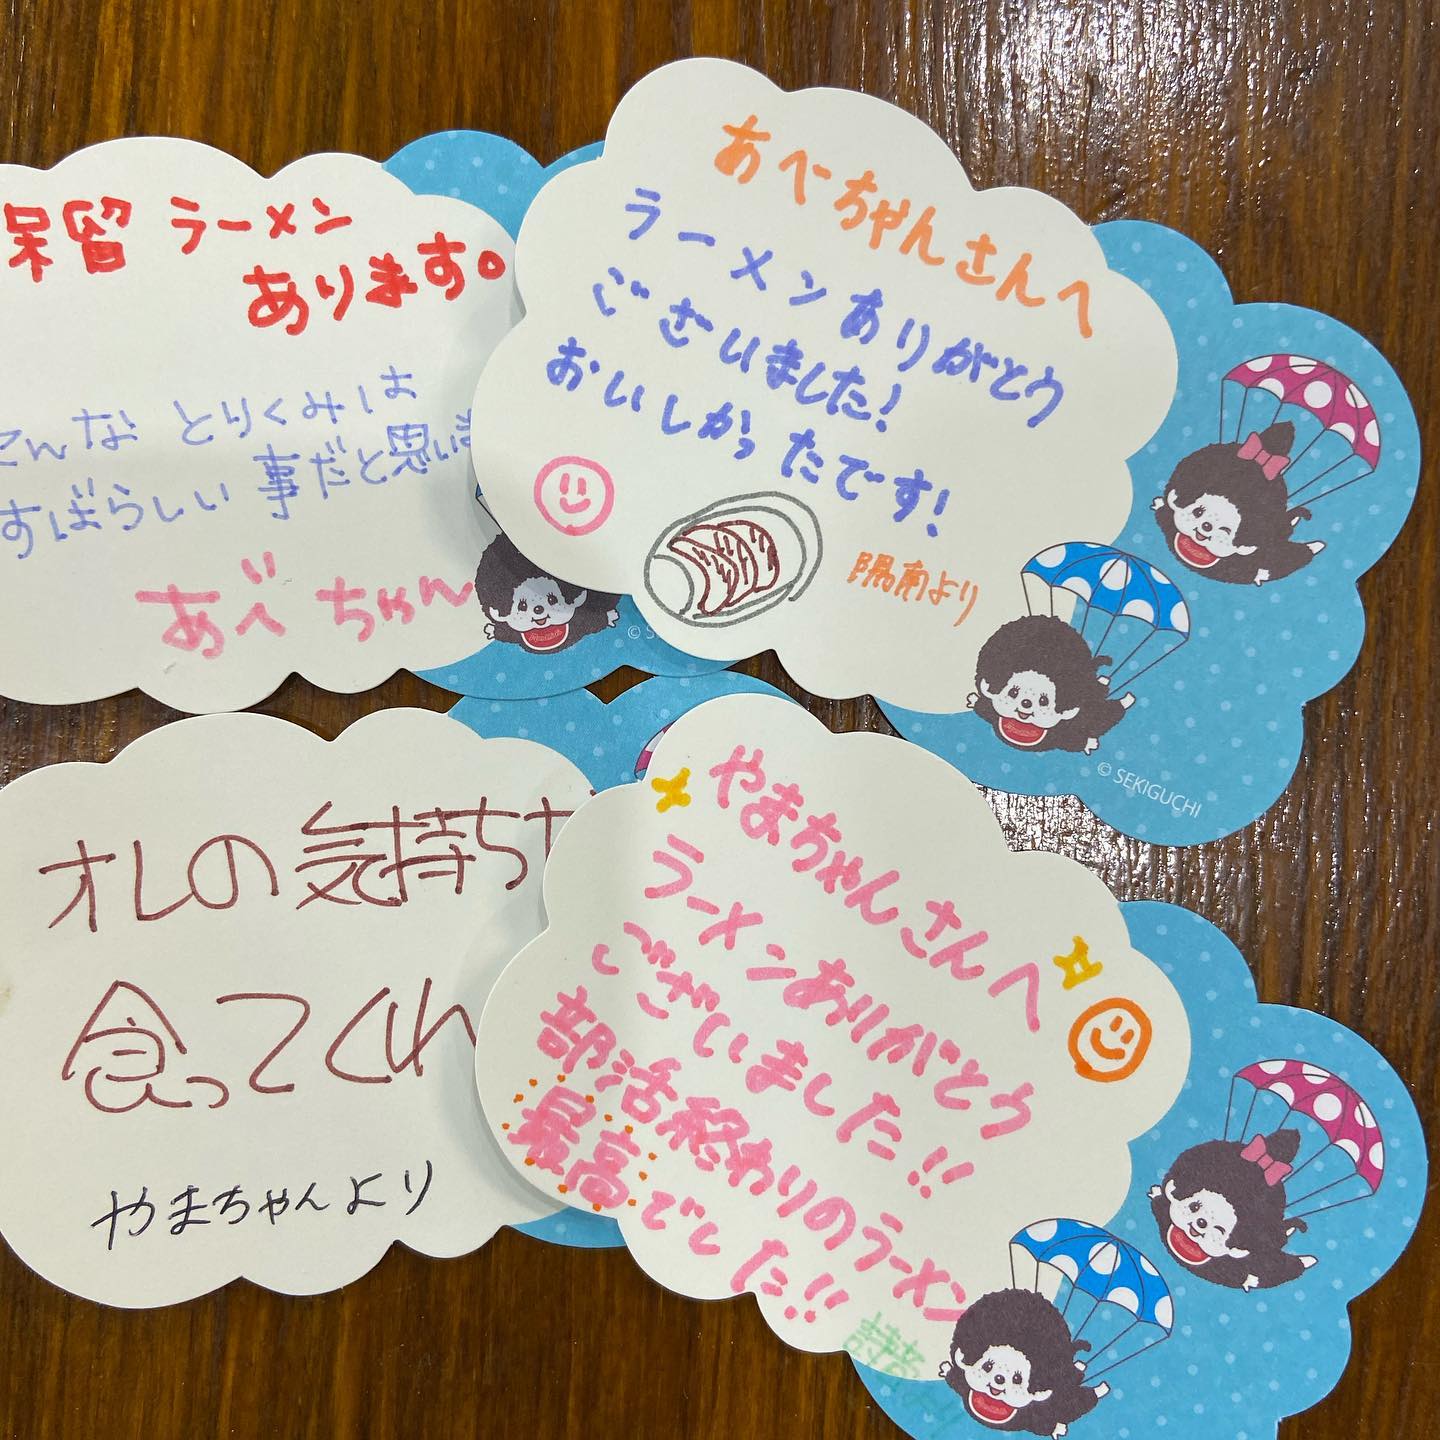 保留 ラーメン
あります。
こんな とりくみは
すばらしい 事だと思いま
あべ ちゃん
あべちゃんさんへ
ラーメンありがとう
ございました!
おいしかったです!
陽南より
© SEKIGUCHI
オレの気持ち
食ってくれ
やまちゃんより
やまちゃんさんへ
ラーメンありがとう
ございました!!
部活終わりのラーメン
最高でした!!